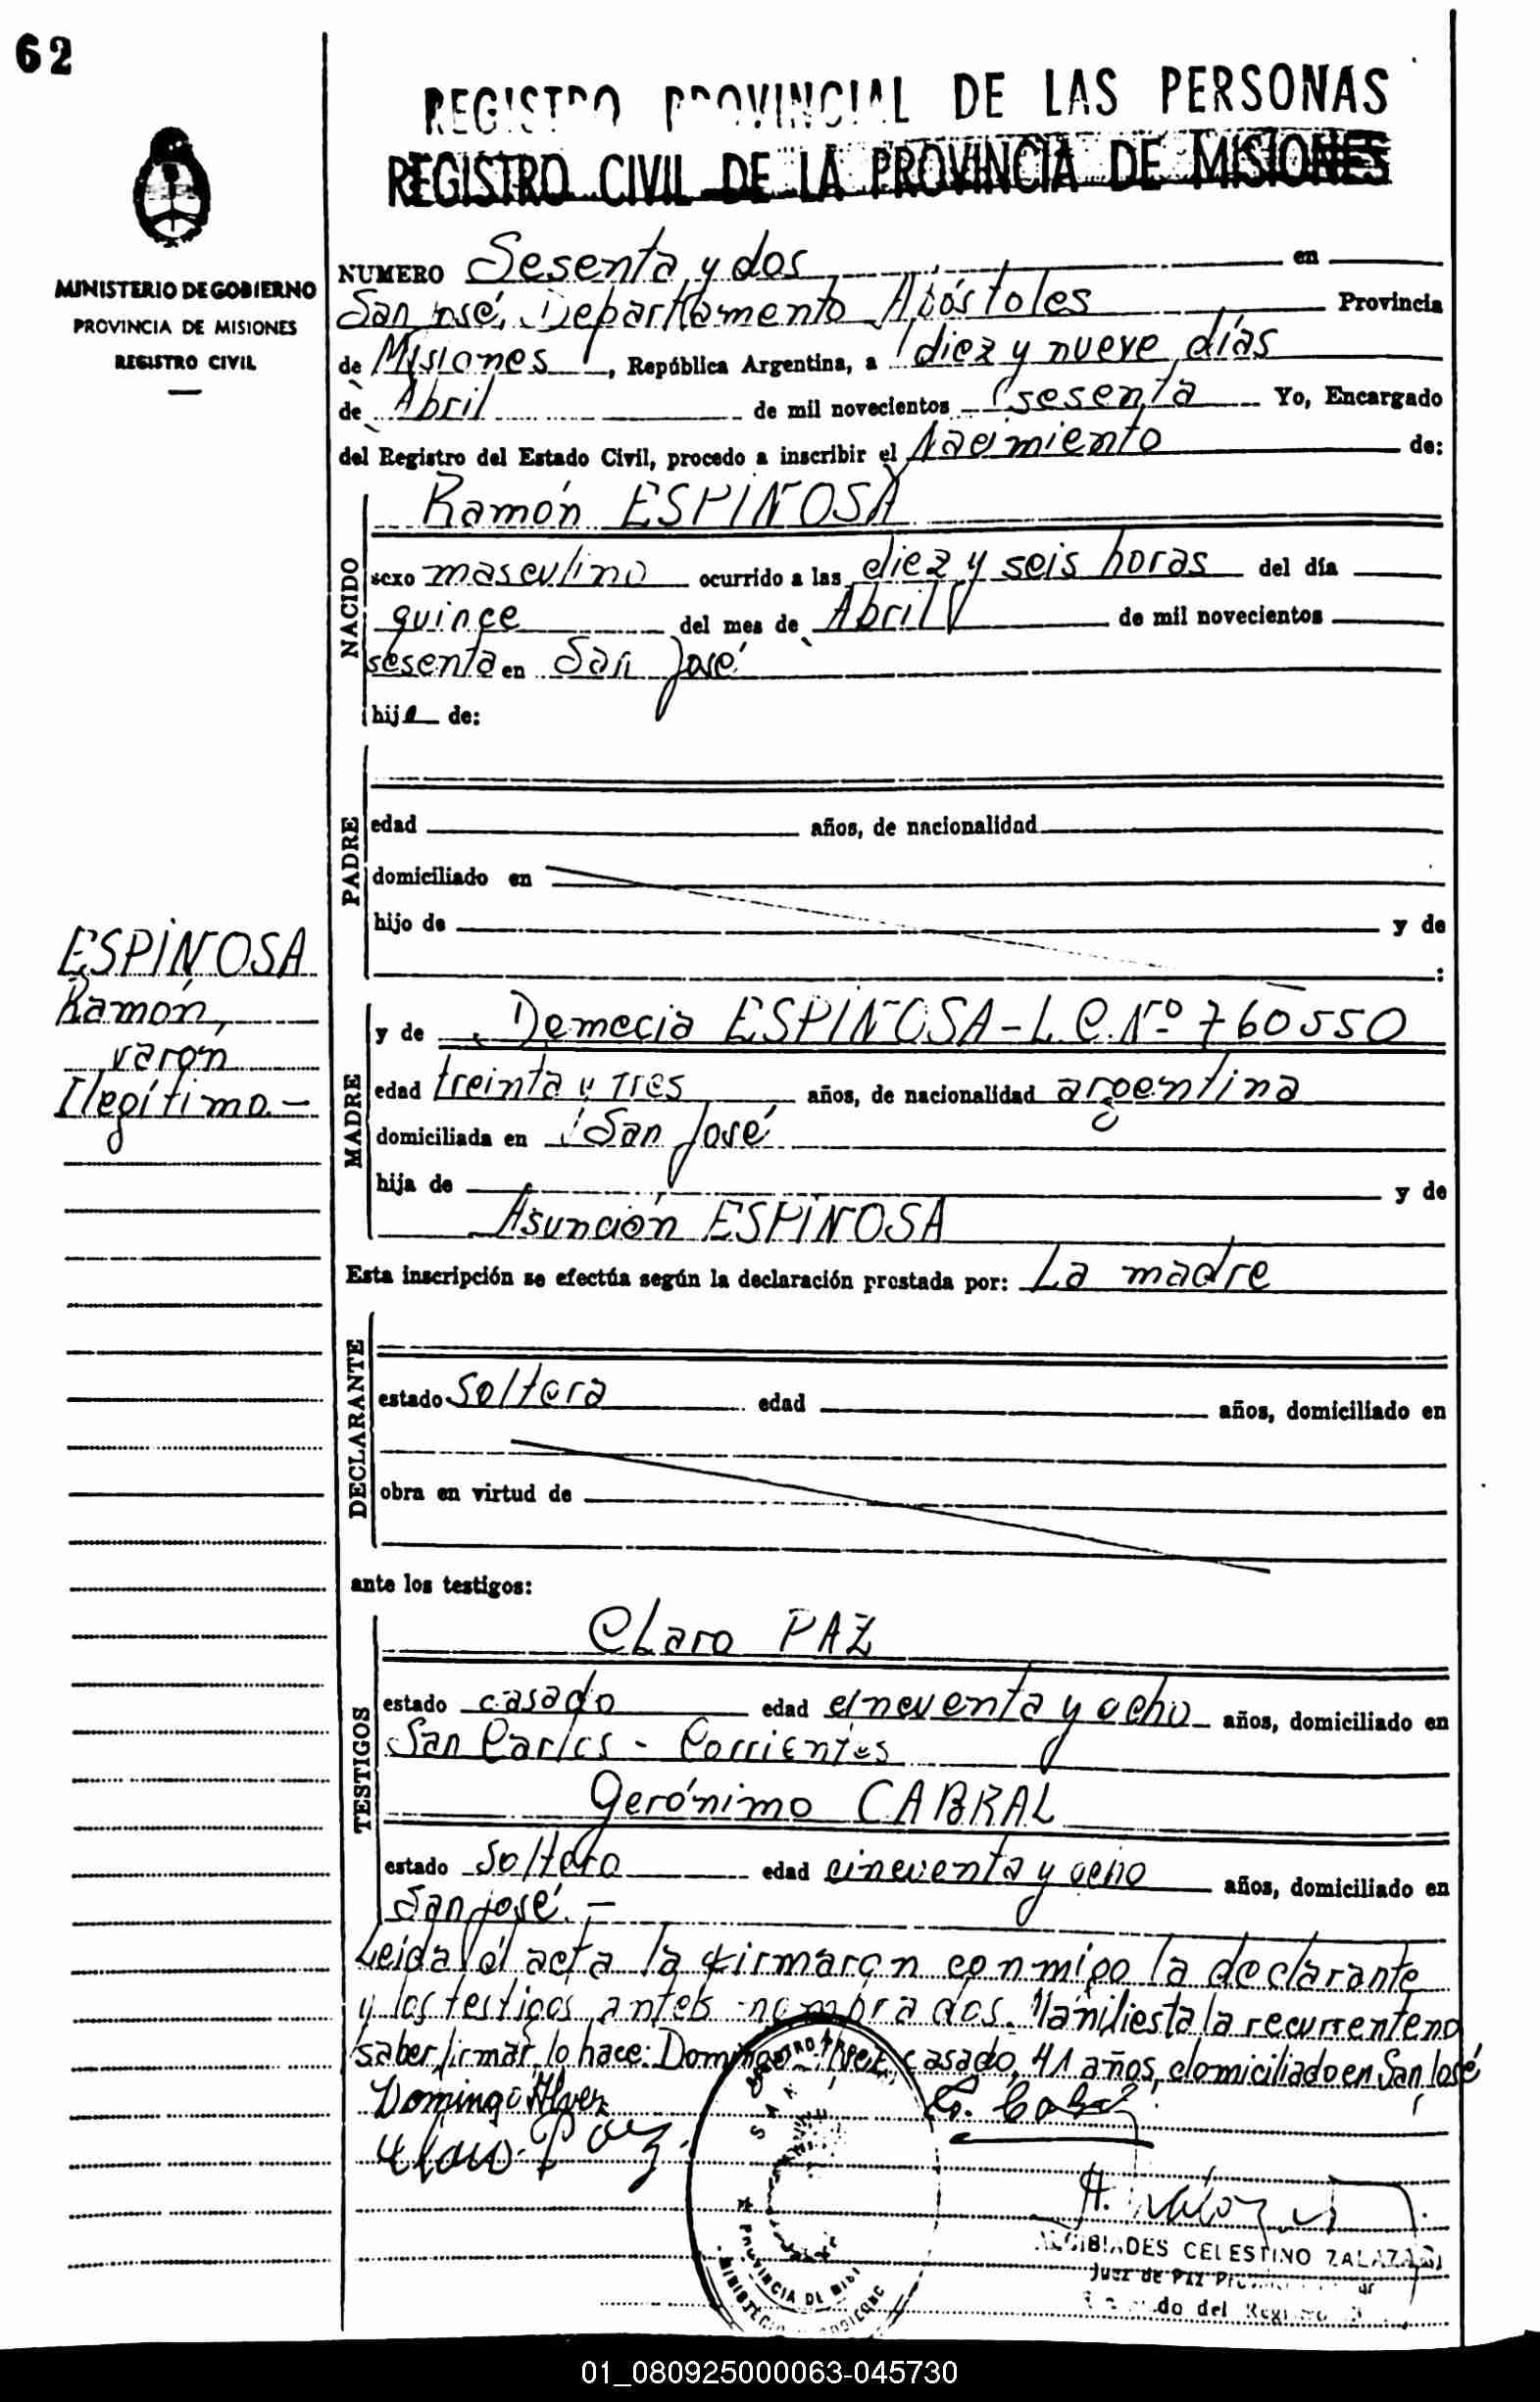 62
REGISTRO PROVINCIAL DE LAS PERSONAS
REGISTRO CIVIL DE LA PROVINCIA DE MISIONES
MINISTERIO DE GOBIERNO
PROVINCIA DE MISIONES
REGISTRO CIVIL
NUMERO Sesenta y dos en
San José, Departamento Apóstoles Provincia
de Misiones, República Argentina, a diez y nueve días
de Abril de mil novecientos sesenta Yo, Encargado
del Registro del Estado Civil, procedo a inscribir el Nacimiento de:
NACIDO
Ramón ESPINOSA
sexo masculino ocurrido a las diez y seis horas del día
quince del mes de Abril de mil novecientos
sesenta en San José
hijo de:
PADRE
edad años, de nacionalidad
domiciliado en
hijo de y de
:
ESPINOSA
Ramón,
varon
Ilegítimo.-
MADRE
y de Demecia ESPINOSA-L.C.Nº 760550
edad treinta y tres años, de nacionalidad argentina
domiciliada en San José
hija de y de
Asunción ESPINOSA
Esta inscripción se efectúa según la declaración prestada por: La madre
DECLARANTE
estado Soltera edad años, domiciliado en
obra en virtud de
ante los testigos:
TESTIGOS
Claro PAZ
estado casado edad cincuenta y ocho años, domiciliado en
San Carlos - Corrientes
Gerónimo CABRAL
estado Soltero edad cincuenta y ocho años, domiciliado en
San José.-
Leída el acta la firmaron conmigo la declarante
y los testigos antes nombrados. Manifiesta la recurrente no
saber firmar lo hace: Domingo casado, 41 años, domiciliado en San José
Domingo Alvez
Claro Paz
G. Cabral
ALCIBIADES CELESTINO ZALAZAR
Juez de Paz
do del Registro
PROVINCIA DE MISIONES
01_080925000063-045730